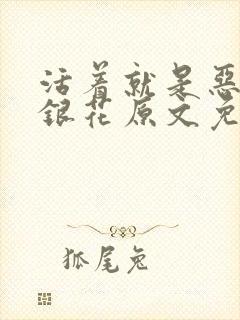 活着就是惡
銀花原文免
狐尾兔